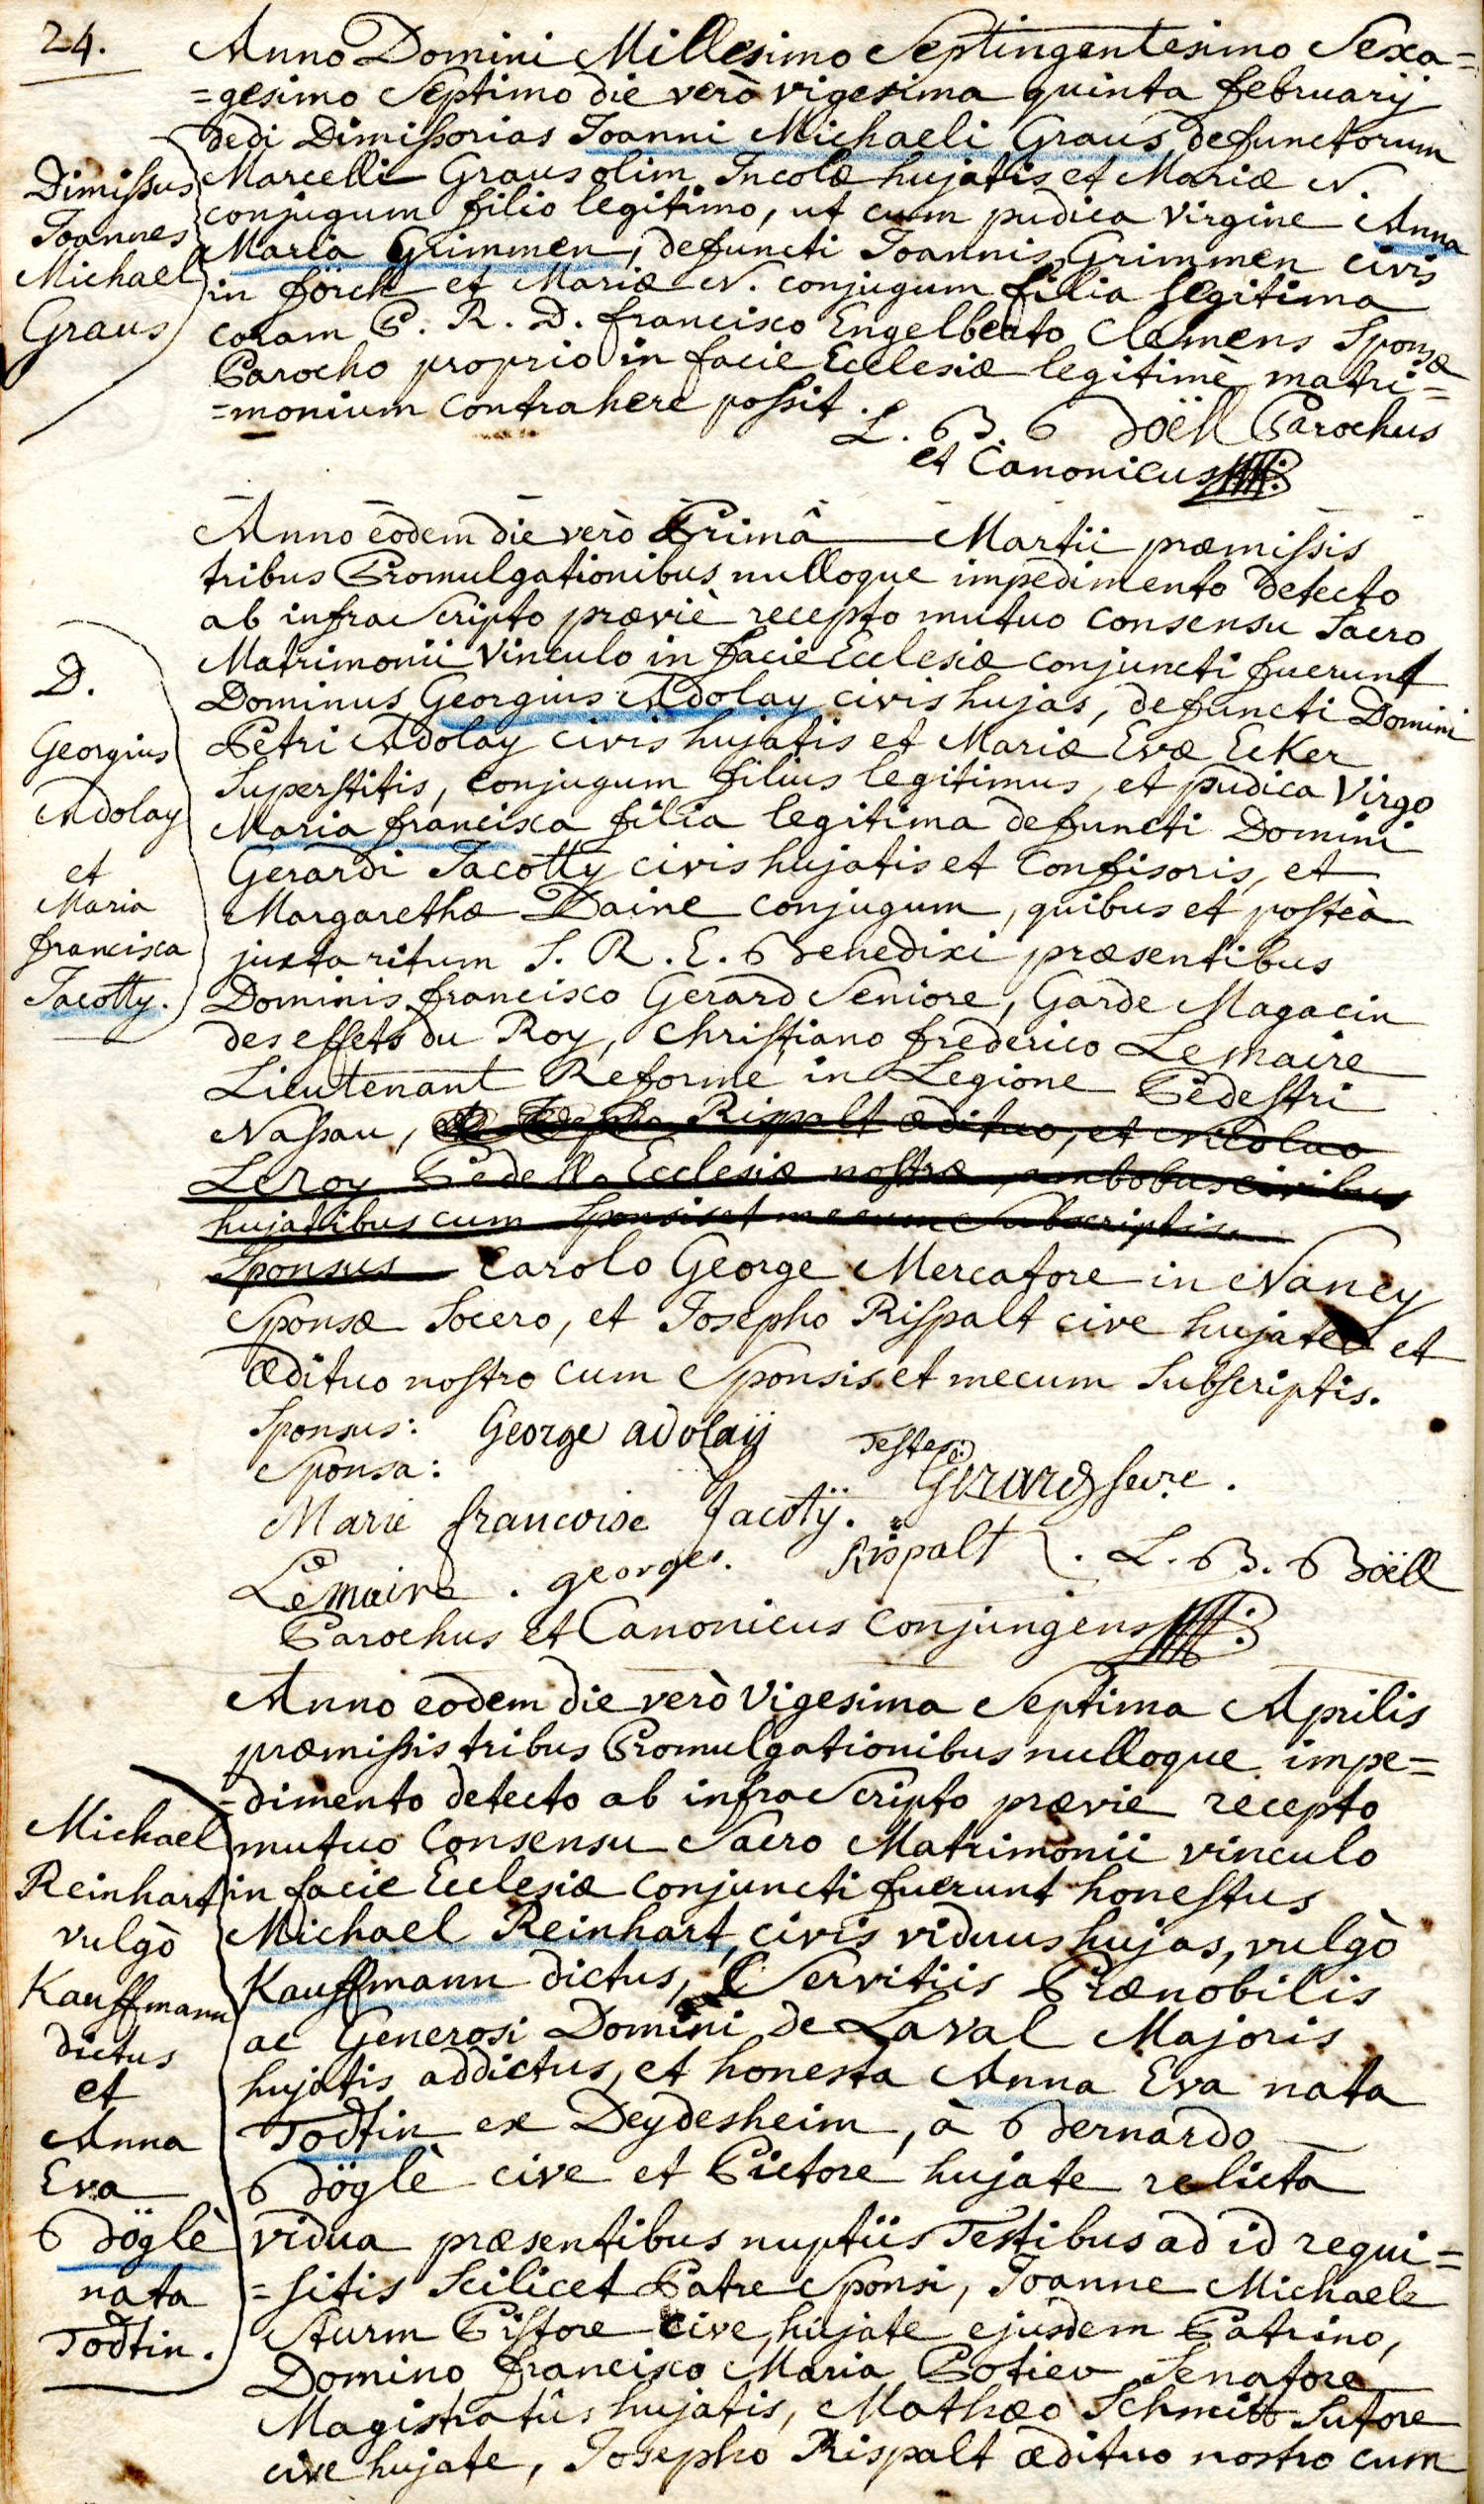 24.
Anno Domini Millesimo Septingentesimo Sexa=
=gesimo Septimo die verò vigesima quinta februarÿ
dedi Dimissorias Joanni Michaeli Graus, defunctorum
Marcelli Graus olim Incolæ hujatis et Mariæ N.
conjugum filio legitimo, ut cum pudica virgine Anna
Maria Grimmen, defuncti Joannis Grimmen civis
in förch et Mariæ N. conjugum filia legitima
coram P. R. D. francisco Engelberto Clemens Sponsæ
Parocho proprio in facie Ecclesiæ legitimè matri=
=monium contrahere possit.
L. B. Böell Parochus
et Canonicus
Dimissus
Joannes
Michael
Graus
Anno eodem die verò Primâ Martii præmissis
tribus Promulgationibus nulloque impedimento detecto
ab infra Scripto præviè recepto mutuo consensu Sacro
Matrimonii Vinculo in facie Ecclesiæ conjuncti fuerunt
Dominus Georgius Adolay civis hujas, defuncti Domini
Petri Adolay civis hujatis et Mariæ Evæ Ecker
Superstitis, conjugum filius legitimus, et pudica Virgo
Maria francisca filia legitima defuncti Domini
Gerardi Jacotty civis hujatis et Confisoris, et
Margarethæ Daine conjugum, quibus et posteà
juxta ritum S. R. E. Benedixi præsentibus
Dominis francisco Gerard Seniore, Garde Magacin
des effets du Roy, Christiano frederico Lemaire
Lieutenant Reformé in Legione Pedestri
Nassau, Rispalt ædituo, et Nicolao
Leroy Pedello Ecclesiæ nostræ, ambobus civibus
hujatibus cum Sponsis et mecum Subscriptis.
Sponsus Carolo George Mercatore in Nancy
Sponsæ Socero, et Josepho Rispalt cive hujate et
ædituo nostro cum Sponsis et mecum Subscriptis.
D.
Georgius
Adolay
et
Maria
francisca
Jacotty.
Sponsus: George adolaÿ Testes:
Sponsa: Gerard
Marie francoise Jacotÿ.
Lemaire. georges. Rispalt. L. B. Böell
Parochus et Canonicus Conjungens
Anno eodem die verò Vigesima Septima Aprilis
præmissis tribus Promulgationibus nulloque impe=
=dimento detecto ab infra Scripto prævie recepto
mutuo Consensu Sacro Matrimonii vinculo
in facie Ecclesiæ Conjuncti fuerunt honestus
Michael Reinhart, civis viduus hujas, vulgò
Kauffmann dictus, Servitiis Prænobilis
ac Generosi Domini de Laval Majoris
hujatis addictus, et honesta Anna Eva nata
Todtin ex Deydesheim, à Bernardo
Böglè cive et Pictore hujate relicta
vidua præsentibus nuptiis Testibus ad id requi=
=sitis Scilicet Patre Sponsi, Joanne Michaele
Sturm Pistore cive hujate ejusdem Patrino,
Domino francisco Maria Potier Senatore
Magistratûs hujatis, Mathæo Schmitt Sutore
cive hujate, Josepho Rispalt ædituo nostro cum
Michael
Reinhart
vulgò
Kauffmann
dictus
et
Anna
Eva
Böglè
nata
Todtin.